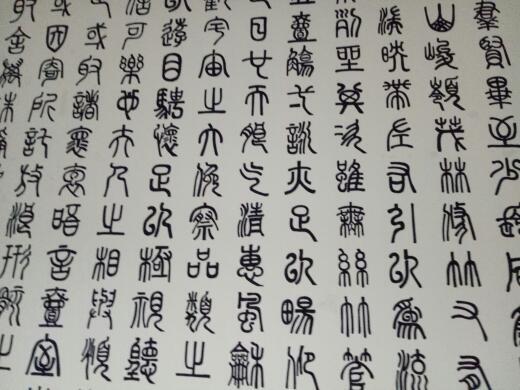 群賢畢至少長咸
山峻嶺茂林修竹又有
湍映帶左右引以為流
列坐其次雖無絲竹管
壹觴弌詠亦足以暢
日也天朗气清惠風和
觀宇宙之大俯察品類之
遊目騁懷足以極視聽
可樂也夫人之相與俯
或取諸褱袌晤言壹室
因寄所託放浪形骸之
取舍萬殊